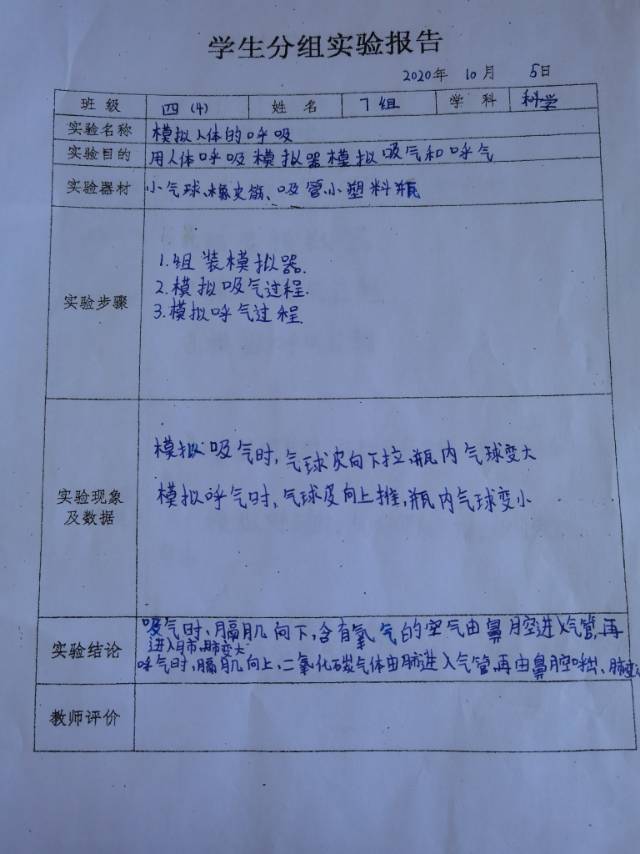 学生分组实验报告
2020年 10月 5日
班级 四(4) 姓名 7组 学科 科学
实验名称 模拟人体的呼吸
实验目的 用人体呼吸模拟器模拟吸气和呼气
实验器材 小气球、橡皮筋、吸管小塑料瓶
实验步骤
1.组装模拟器.
2.模拟吸气过程.
3.模拟呼气过程
实验现象及数据
模拟吸气时,气球皮向下拉,瓶内气球变大
模拟呼气时,气球皮向上推,瓶内气球变小
实验结论
吸气时、膈肌向下,含有氧气的空气由鼻腔进入气管,再
进入肺,肺变大
呼气时,膈肌向上,二氧化碳气体由肺进入气管,再由鼻腔呼出、肺变
教师评价